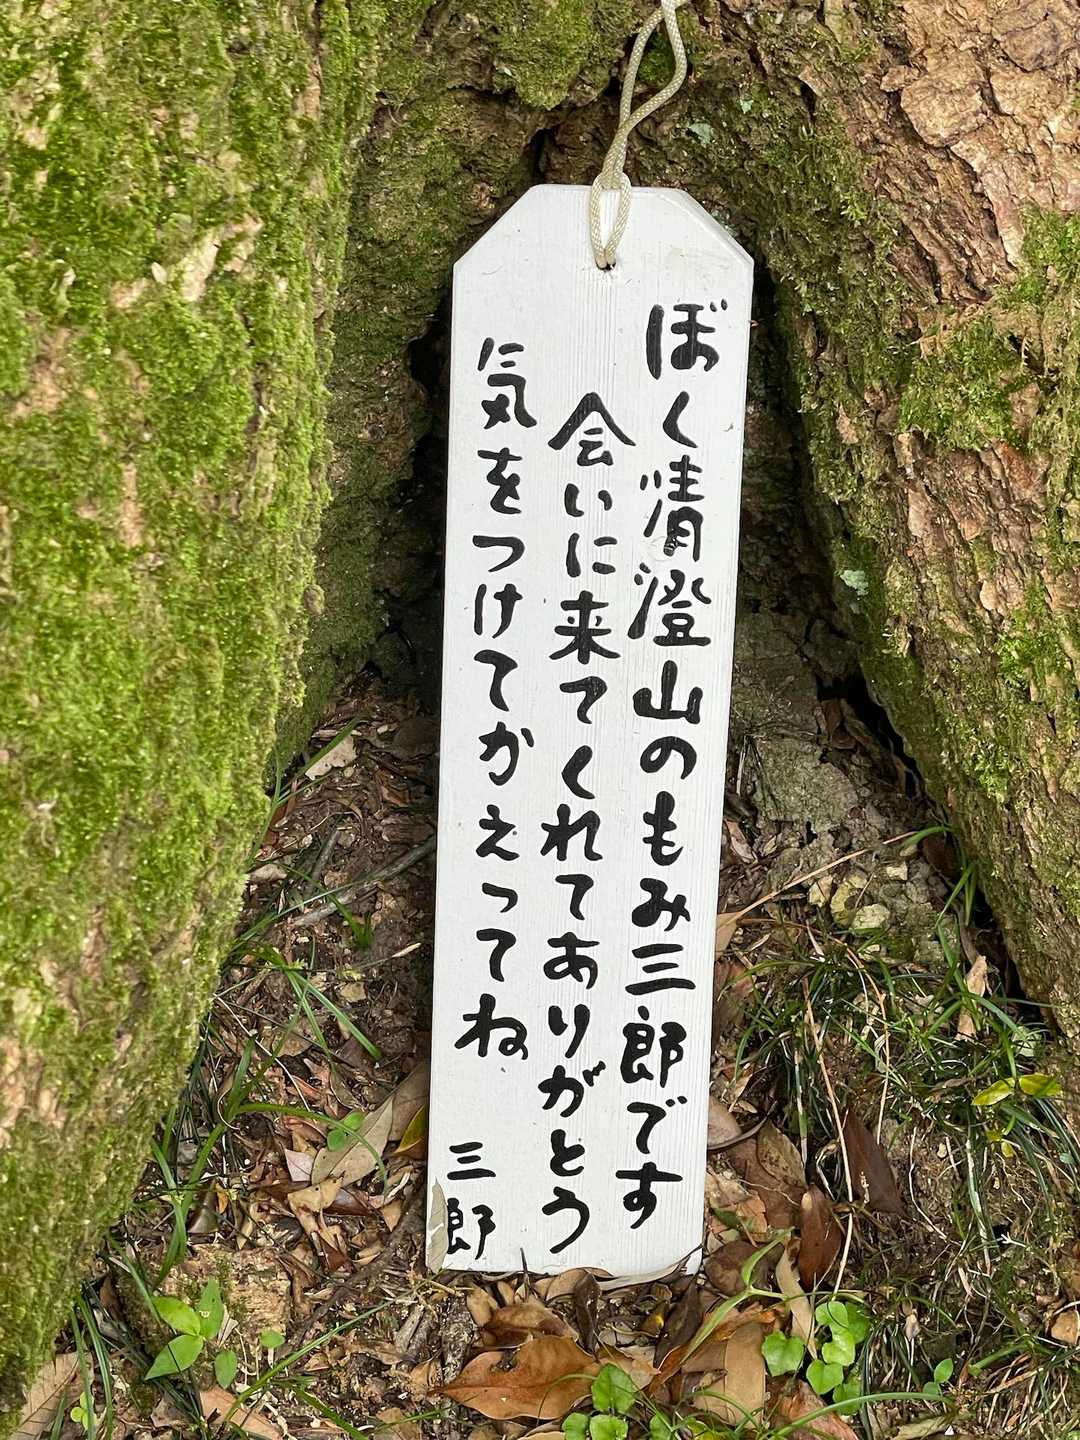 ぼく清澄山のもみ三郎です
会いに来てくれてありがとう
気をつけてかえってね
三郎